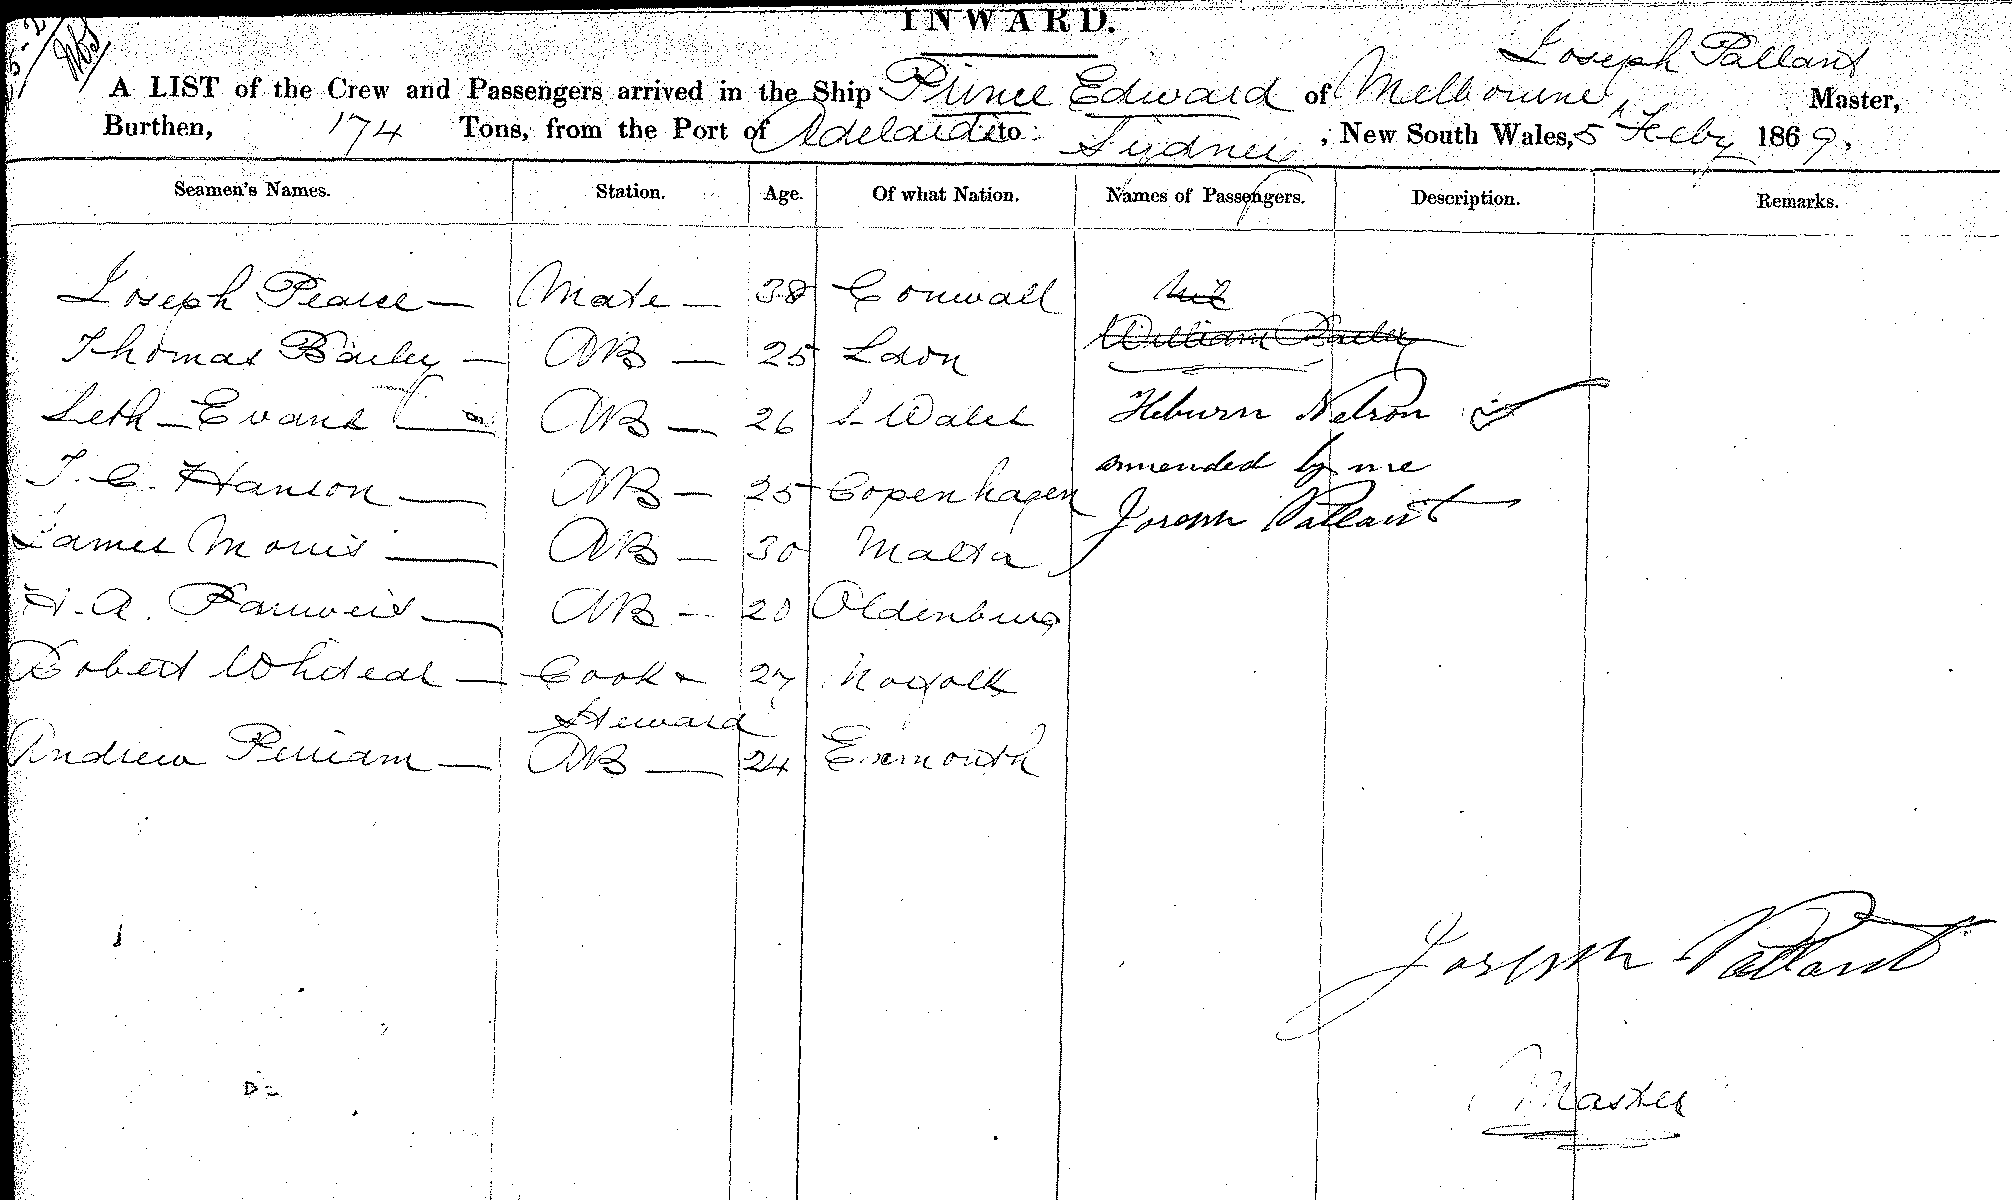 INWARD.
Joseph Pallant
A LIST of the Crew and Passengers arrived in the Ship Prince Edward of Melbourne, Master,
Burthen, 174 Tons, from the Port of Adelaide to Sydney, New South Wales, 5 Feby 1869.
Seamen's Names. Station. Age. Of what Nation. Names of Passengers. Description. Remarks.
Joseph Pearce — Mate — 38 Cornwall Nil
Thomas Bailey — AB — 25 Ldon William Bailey
Seth Evans — AB — 26 S. Wales Heburn Nelson
amended by me
T. C. Hanson — AB — 25 Copenhagen Joseph Pallant
James Morris — AB — 30 Malta
H. A. AB — 20 Oldenburg
Robert Cook & 27 Norfolk
Steward
Andrew Perriam — AB — 24 Exmouth
Joseph Pallant
Master